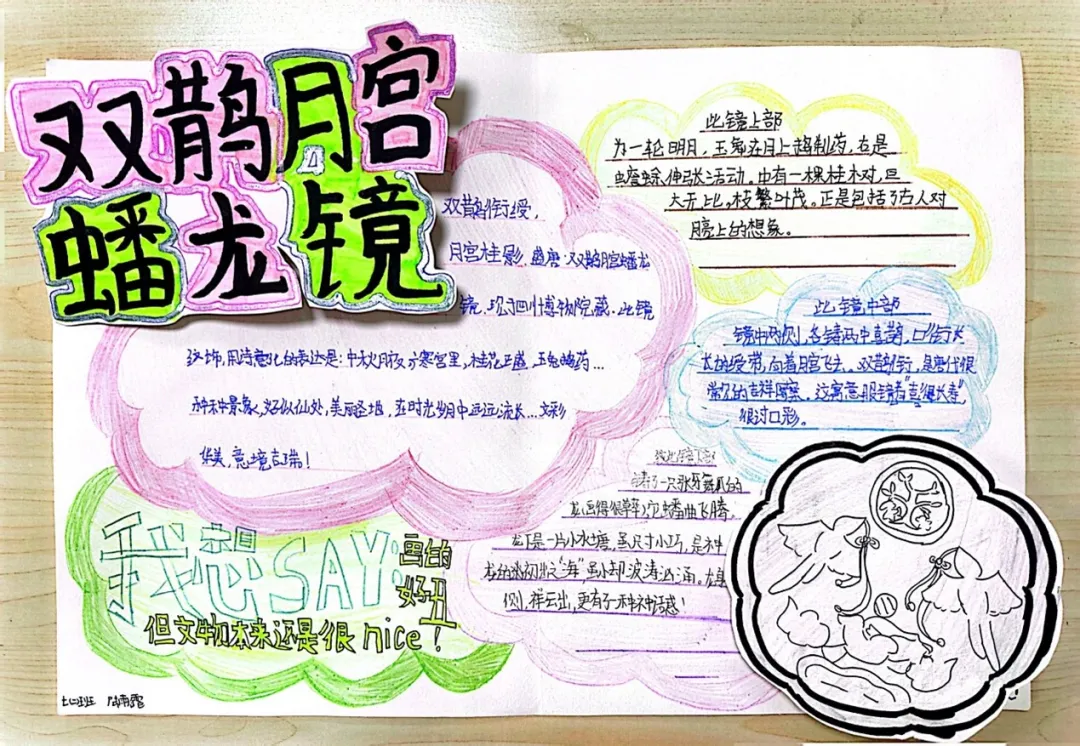 双鹊月宫
蟠龙镜
双鹊衔绶，
月宫桂影，盛唐·双鹊月宫蟠龙
镜，现于四川博物院藏。此镜
纹饰，用诗意化的表达是：中秋月夜，广寒宫里，桂花正盛，玉兔捣药…
种种景象，好似仙处，美丽圣地，在时光岁月中远远流长…文彩
华美，意境吉瑞！
此镜上部
为一轮明月，玉兔在月上捣制药，右是
蟾蜍伸张活动。中有一棵桂木对，巨
大无比，枝繁叶茂。正是包括了古人对
月亮上的想象。
此镜中部
镜中两侧，各铸两中喜鹊，口衔长
长的绶带，向着月宫飞去。双鹊衔，是唐代很
常见的吉祥图案，这寓意眼镜着“喜得长寿”
很讨口彩。
铸了一只张牙舞爪的
龙，画得很，蟠曲飞腾，
龙下是一片小水塘，虽尺寸小巧，是神
龙的水初出之“海”，虽小却波涛汹涌。龙身
侧，祥云出，更有了种神话感！
我想SAY：
画的
好丑
但文物本来还是很nice！
七四班